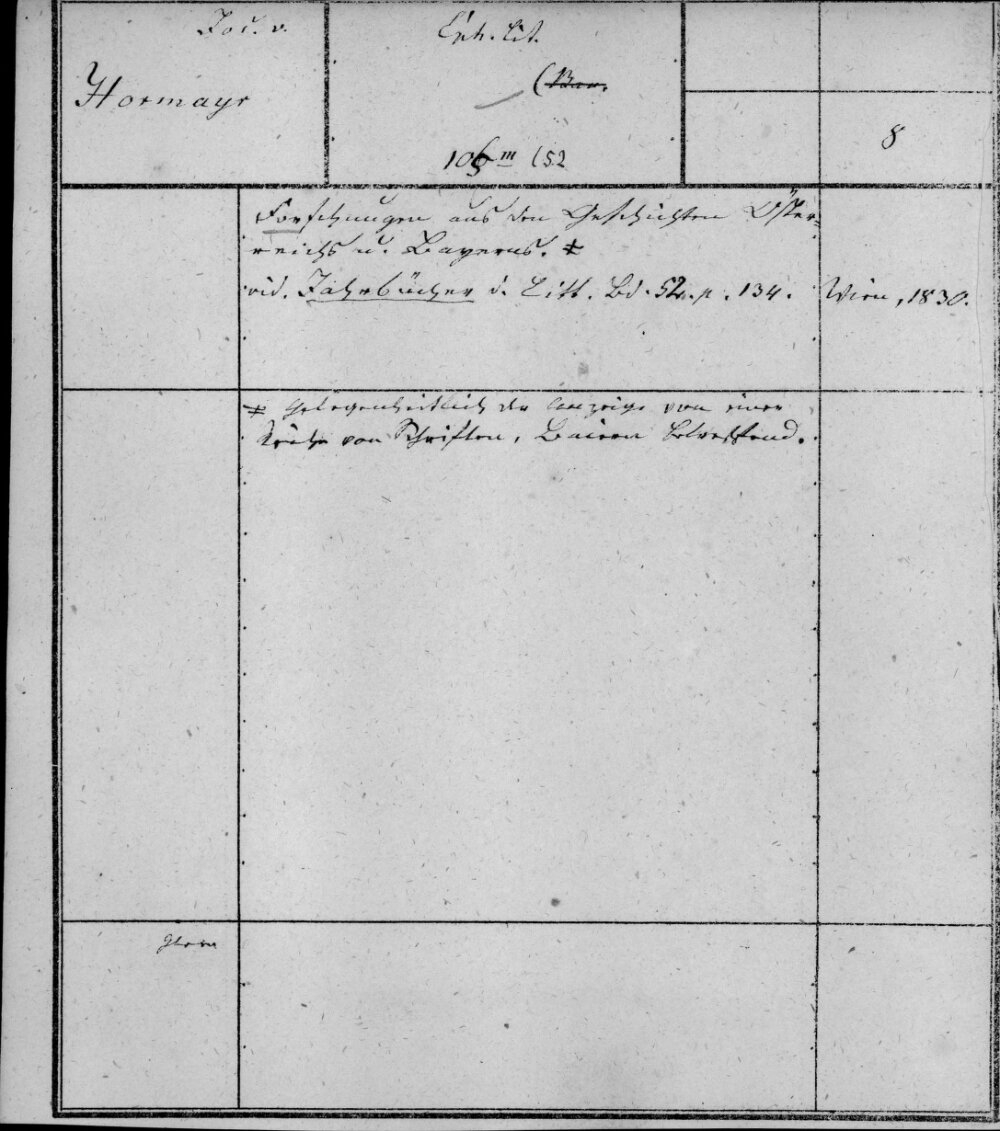 Jos. v.
Hormayr
Eph. lit.
(Bav.
105 m (52
8
Forschungen aus den Geschichten Öster-
reichs u. Bayerns. ‡
vid. Jahrbücher d. Litt. Bd. 52. p. 134.
Wien, 1830.
‡ Gelegenheitlich der Anzeige von einer
Reihe von Schriften, Baiern betreffend.